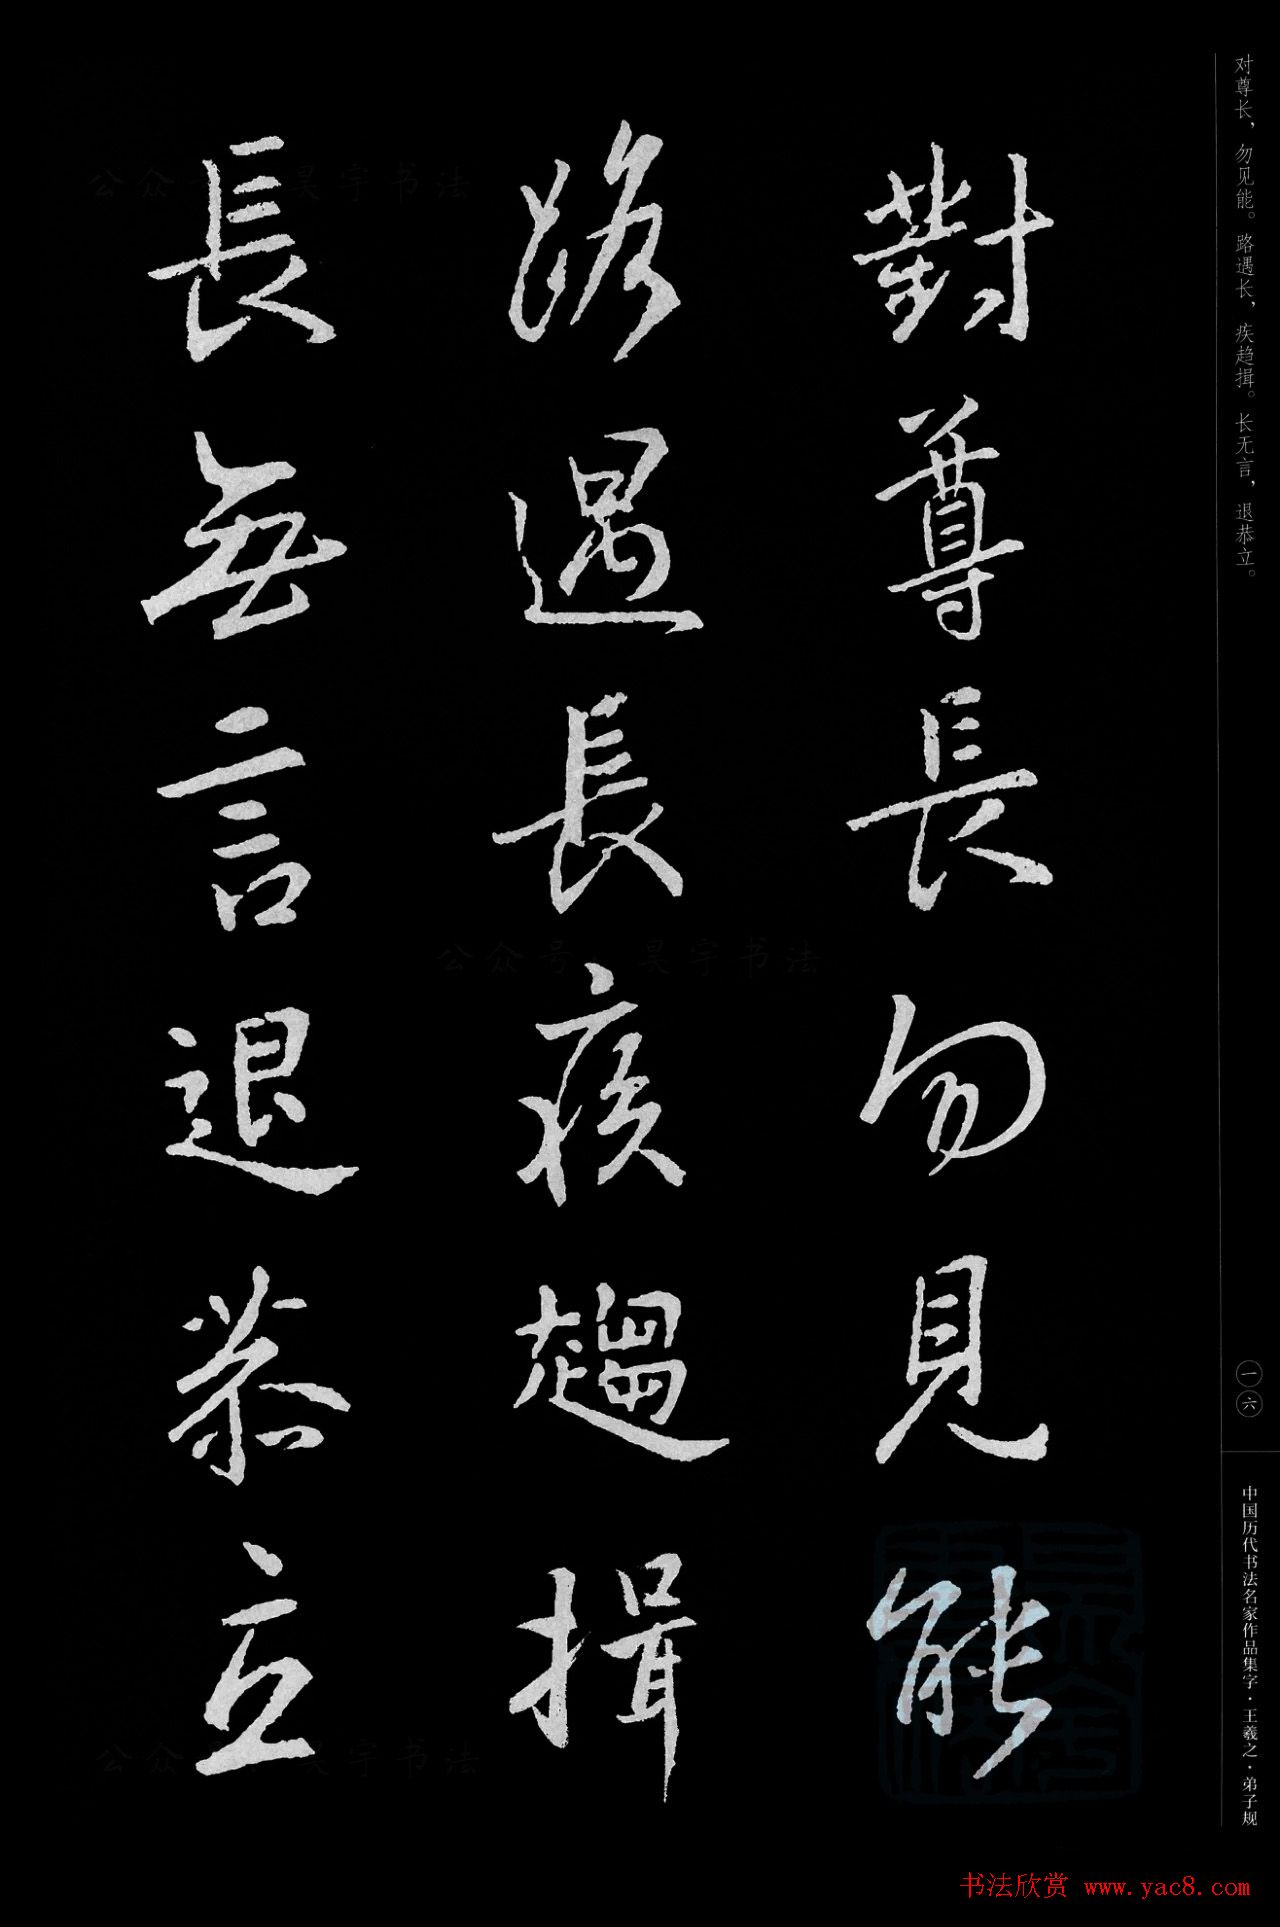 对尊长，勿见能。路遇长，疾趋揖。长无言，退恭立。
對尊長勿見能
路遇長疾趨揖
長無言退恭立
一六
中国历代书法名家作品集字·王羲之·弟子规
公众号 昊宇书法
公众号 昊宇书法
公众号 昊宇书法
书法欣赏 www.yac8.com